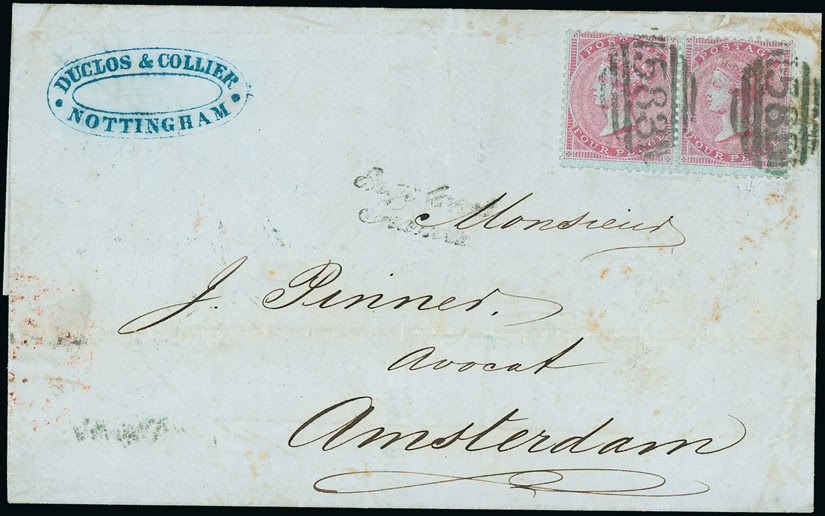 DUCLOS & COLLIER
NOTTINGHAM
POSTAGE
FOUR PENCE
583
POSTAGE
FOUR PENCE
583
Monsieur
J. Pinner.
Avocat
Amsterdam